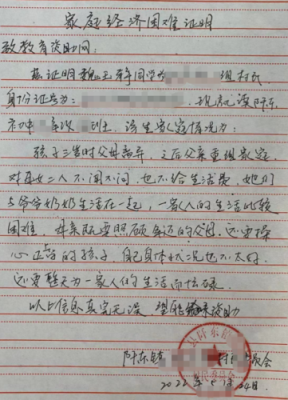 家庭经济困难证明
致教育资助网:
兹证明魏 同学 现村民
身份证号为: 现就读阡东
初中 班 该生家庭情况为:
孩子三岁时父母离异,之后父亲重组家庭
对母女二人不闻不问,也不给生活费,她们
与爷爷奶奶生活在一起,一家人的生活比较
困难,母亲既要照顾年迈的父母,还要操
心上学的孩子,自己身体状况也不太好
还要整天为一家人的生活而忙碌。
以上信息真实无误,望能 资助
阡东镇 村 委会
2022年 月24日